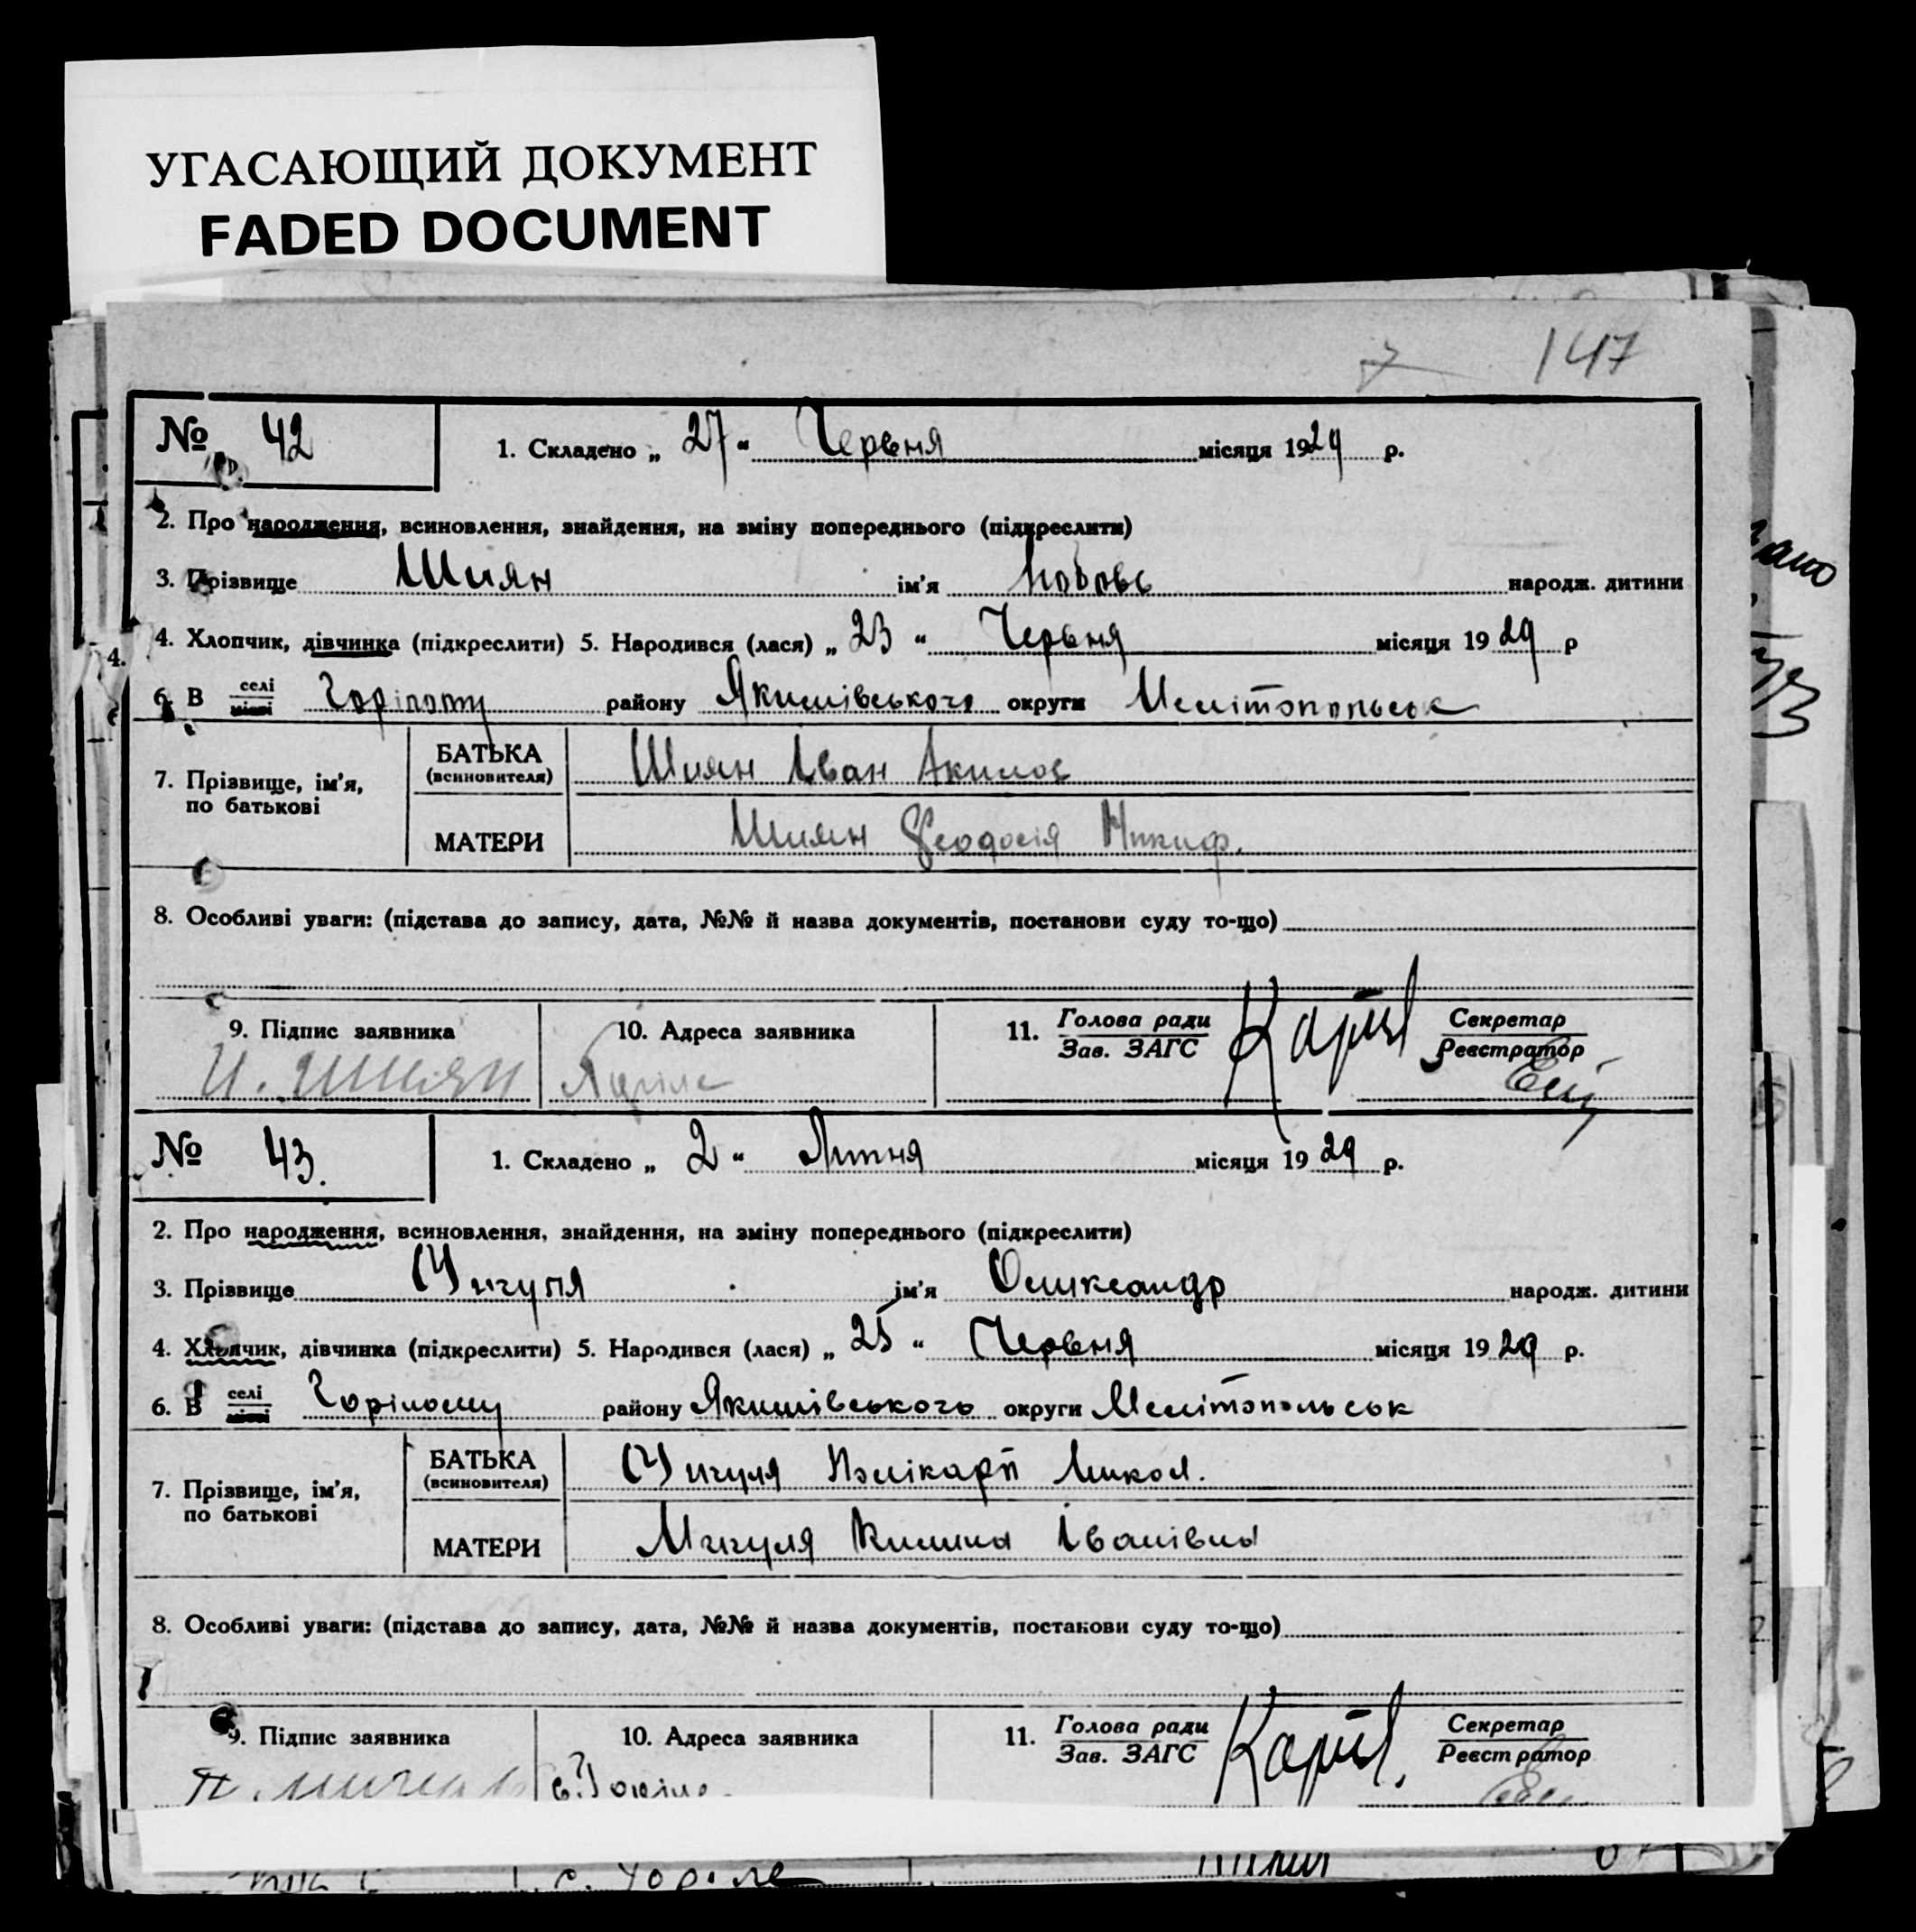 УГАСАЮЩИЙ ДОКУМЕНТ
FADED DOCUMENT
147
№ 42 1. Складено „ 27 “ Червня місяця 1929 р.
2. Про народження, всиновлення, знайдення, на зміну попереднього (підкреслити)
3. Прізвище Шиян ім'я Любовь народж. дитини
4. Хлопчик, дівчинка (підкреслити) 5. Народився (лася) „ 23 “ Червня місяця 1929 р
6. В селі місті Горілому району Якимівського округи Мелітопольськ
7. Прізвище, ім'я, по батькові
БАТЬКА (всиновителя) Шиян Іван Акимов
МАТЕРИ Шиян Феодосія Микиф.
8. Особливі уваги: (підстава до запису, дата, №№ й назва документів, постанови суду то-що)
9. Підпис заявника 10. Адреса заявника 11. Голова ради Зав. ЗАГС Секретар Реєстратор
И. Шиян
№ 43. 1. Складено „ 2 “ Липня місяця 1929 р.
2. Про народження, всиновлення, знайдення, на зміну попереднього (підкреслити)
3. Прізвище Мигуля ім'я Олександр народж. дитини
4. Хлопчик, дівчинка (підкреслити) 5. Народився (лася) „ 25 “ Червня місяця 1929 р.
6. В селі місті Горілому району Якимівського округи Мелітопольськ
7. Прізвище, ім'я, по батькові
БАТЬКА (всиновителя) Мигуля Полікарп Микол.
МАТЕРИ Мигуля Килина Іванівна
8. Особливі уваги: (підстава до запису, дата, №№ й назва документів, постанови суду то-що)
9. Підпис заявника 10. Адреса заявника 11. Голова ради Зав. ЗАГС Секретар Реєстратор
с. Горіле